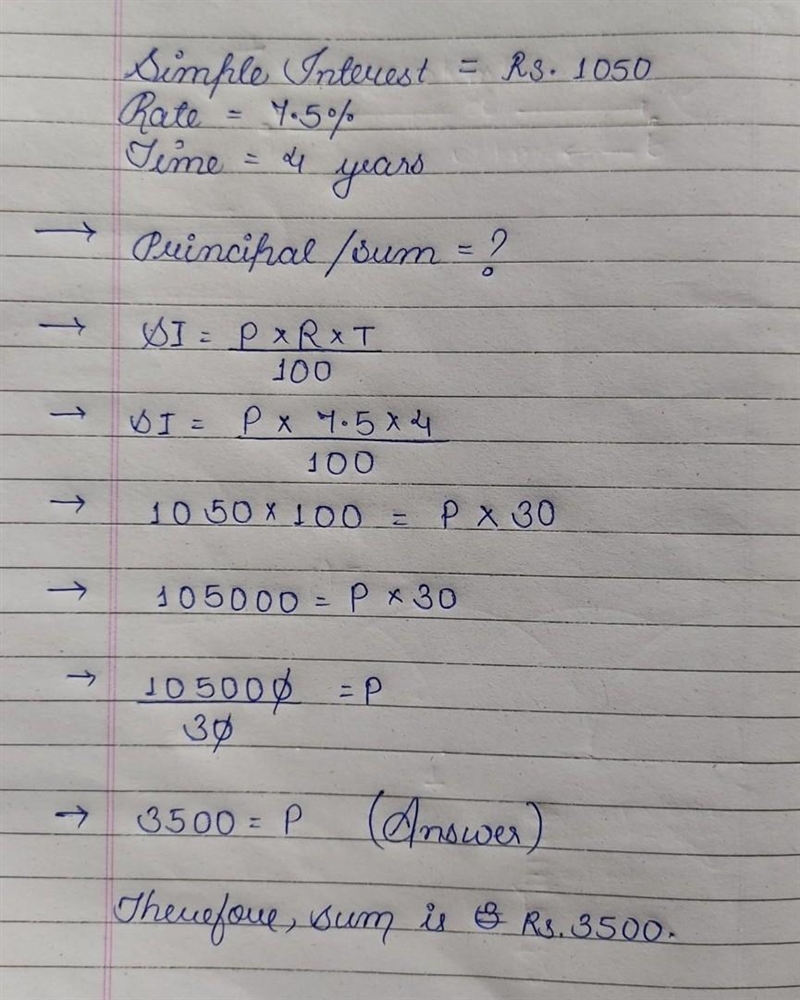 Simple Interest = Rs. 1050
Rate = 7.5%
Time = 4 years
→ Principal/sum = ?
→ SI = P × R × T
100
→ SI = P × 7.5 × 4
100
→ 1050 × 100 = P × 30
→ 105000 = P × 30
→ 105000 = P
30
→ 3500 = P (Answer)
Therefore, sum is Rs. 3500.